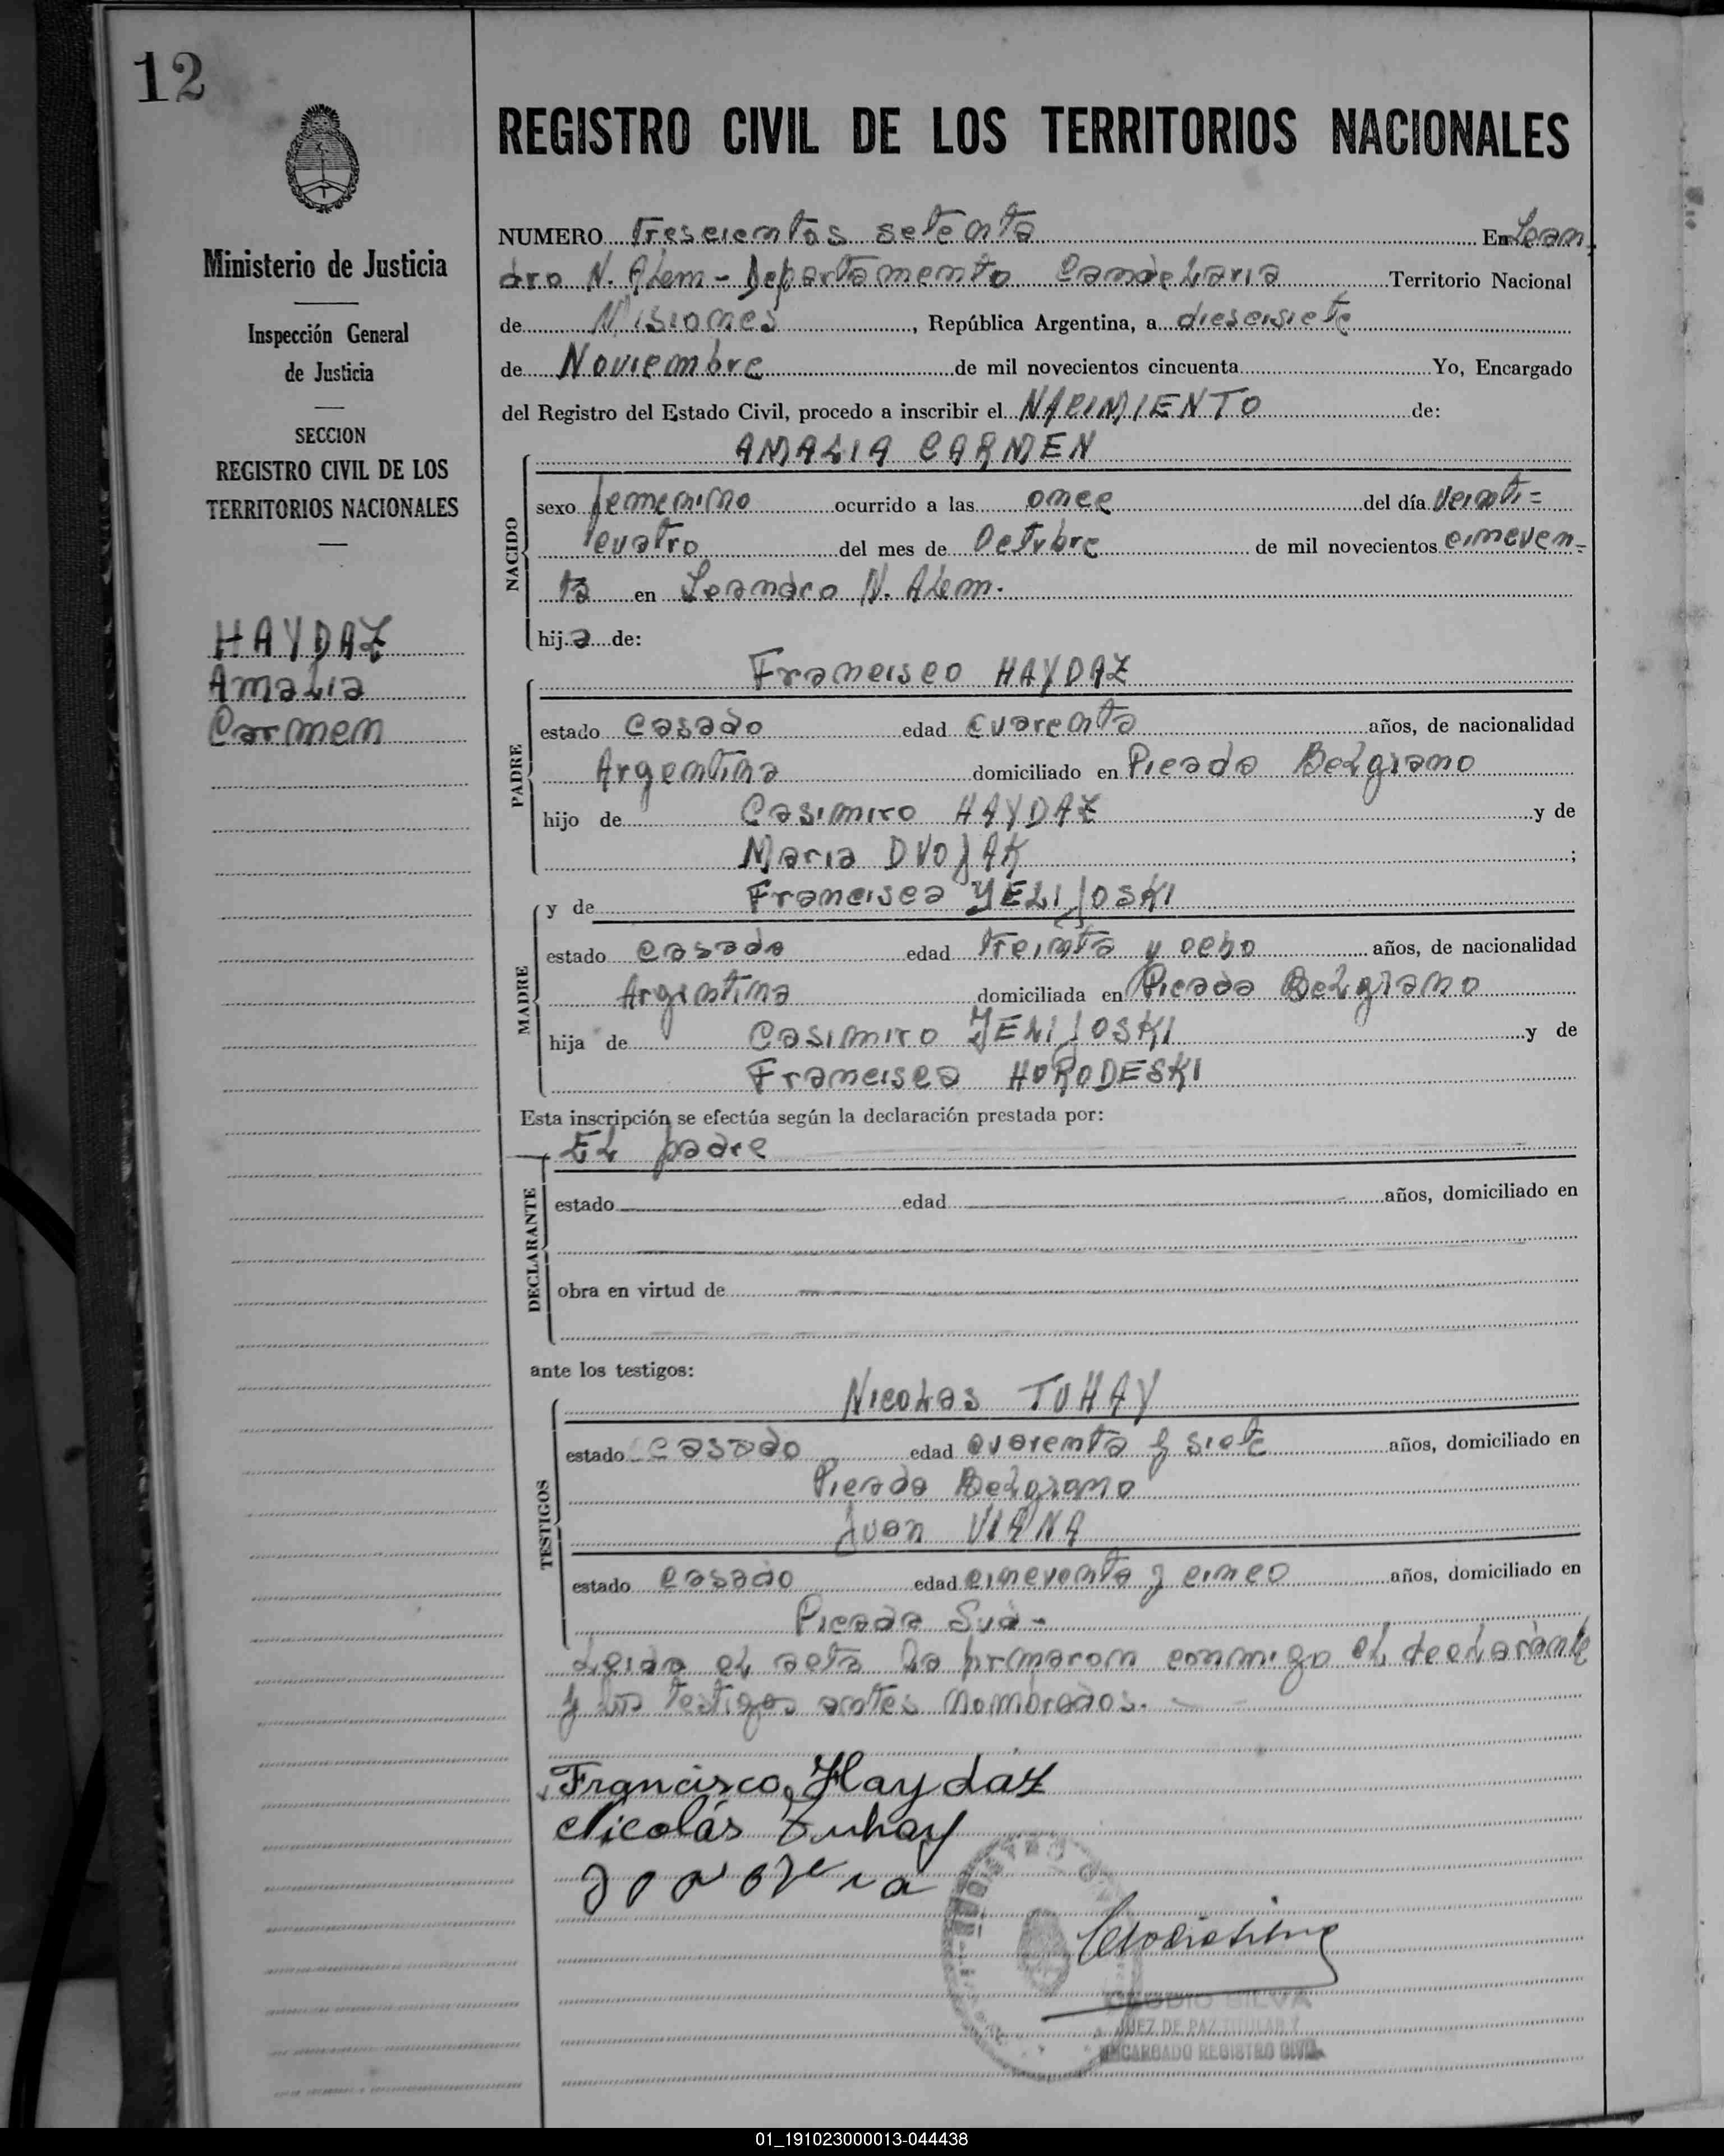 12
REGISTRO CIVIL DE LOS TERRITORIOS NACIONALES
Ministerio de Justicia
Inspección General
de Justicia
SECCION
REGISTRO CIVIL DE LOS
TERRITORIOS NACIONALES
HAYDAZ
Amalia
Carmen
NUMERO Trescientos setenta En Lean
dro N. Alem - Departamento Candelaria Territorio Nacional
de Misiones, República Argentina, a diescisiete
de Noviembre de mil novecientos cincuenta Yo, Encargado
del Registro del Estado Civil, procedo a inscribir el NACIMIENTO de:
NACIDO
AMALIA CARMEN
sexo femenino ocurrido a las once del día veinti=
cuatro del mes de Octubre de mil novecientos cincuen=
ta en Leandro N. Alem.
hija de:
PADRE
Francisco HAYDAZ
estado casado edad cuarenta años, de nacionalidad
Argentina domiciliado en Picada Belgrano
hijo de Casimiro HAYDAZ y de
Maria DVOJAK ;
MADRE
y de Francisca YELIJOSKI
estado casada edad treinta y ocho años, de nacionalidad
Argentina domiciliada en Picada Belgrano
hija de Casimiro YELIJOSKI y de
Francisca HORODESKI
Esta inscripción se efectúa según la declaración prestada por:
DECLARANTE
El padre
estado edad años, domiciliado en
obra en virtud de
ante los testigos:
TESTIGOS
Nicolas TUHAY
estado casado edad cuarenta y siete años, domiciliado en
Picada Belgrano
Juan VIANA
estado casado edad cincuenta y cinco años, domiciliado en
Picada Sud-
Leida el acta la firmaron conmigo el declarante
y los testigos antes nombrados.
Francisco Haydaz
Nicolás Tuhay
CLAUDIO SILVA
JUEZ DE PAZ TITULAR Y
ENCARGADO REGISTRO CIVIL
01_191023000013-044438